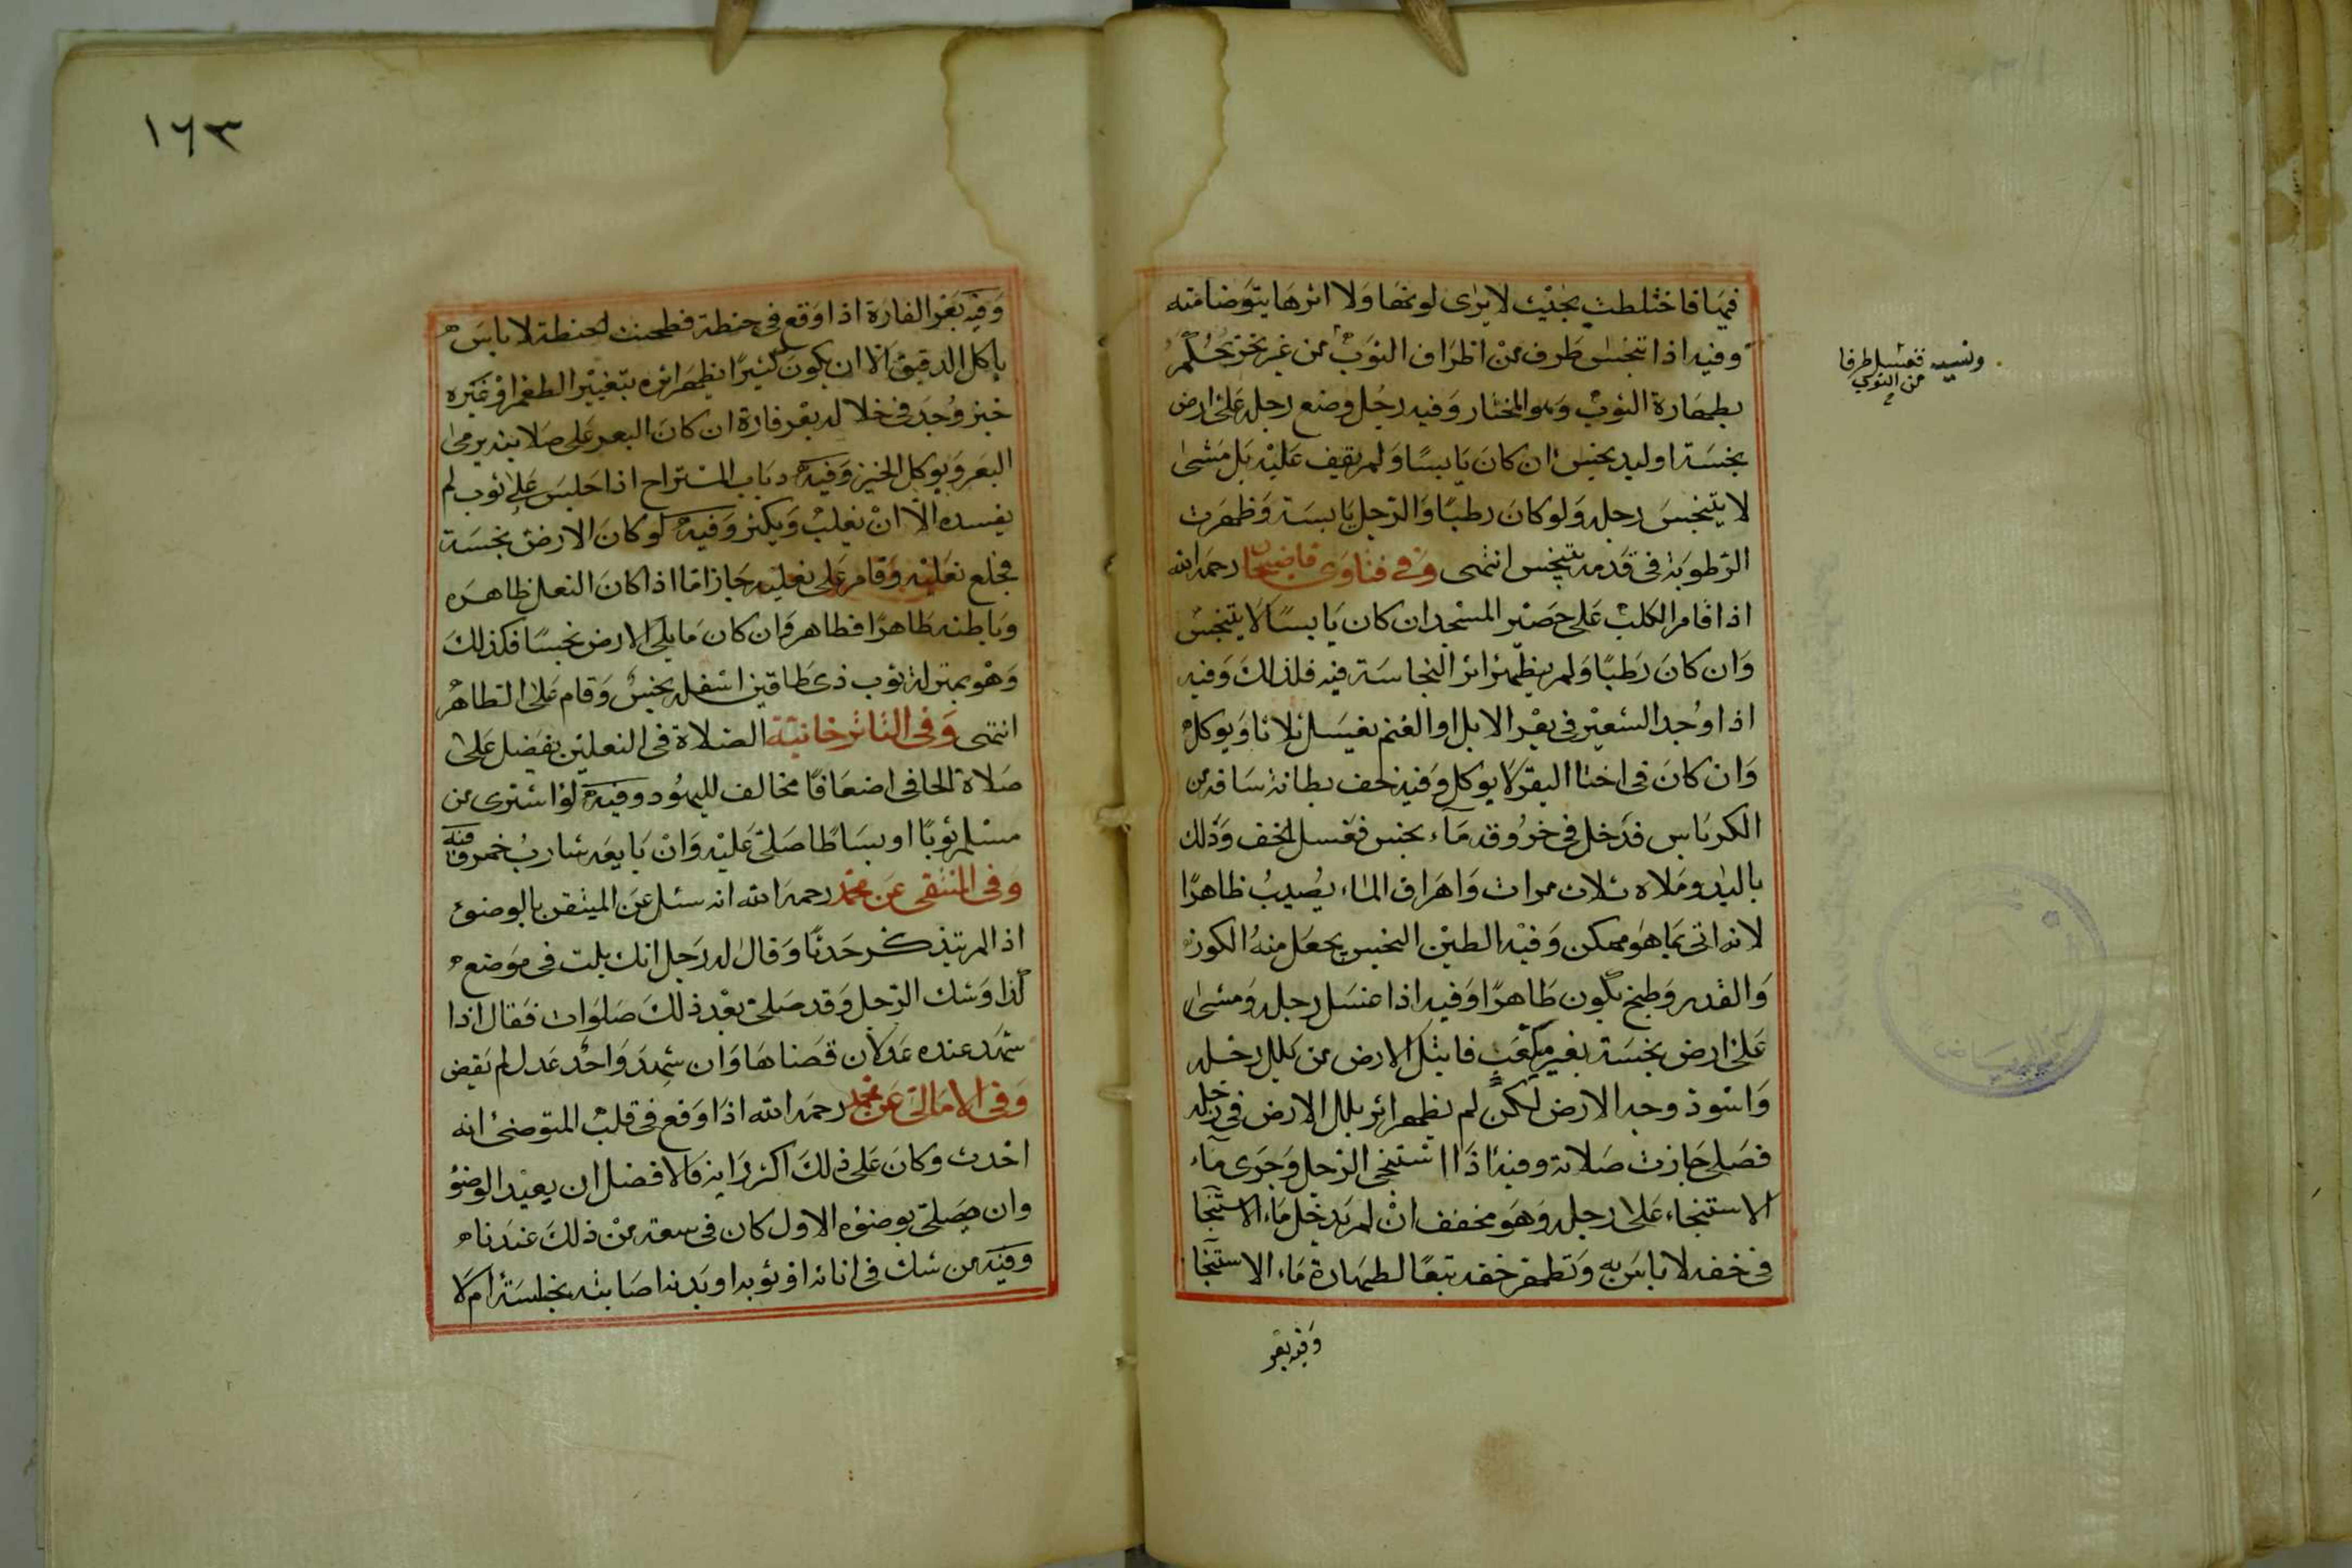 فيها فاختلطت بحيث لا يرى لونها ولا اثرها يتوضا منه
وفيه اذا تنجس طرف من اطراف الثوب من غير تحر يحكم
ونسيه فغسل طرفا
من الثوب
بطهارة الثوب وهو المختار وفيه رجل وضع رجله على ارض
نجسة او لبد نجس ان كان يابسا ولم يقف عليه بل مشى
لا يتنجس رجله ولو كان رطبا والرجل يابسة وظهرت
الرطوبة في قدمه يتنجس انتهى وفي فتاوى قاضيخان رحمه الله
اذا قام الكلب على حصير المسجد ان كان يابسا لا يتنجس
وان كان رطبا ولم يظهر اثر النجاسة فيه فلذلك وفيه
اذا وجد الشعير في بعر الابل او الغنم يغسل ثلاثا ويوكل
وان كان في اخثا البقر لا يوكل وفيه خف بطانة ساقه من
الكرباس فدخل في خروقه ماء نجس فغسل الخف وذلك
باليد وملاه ثلاث مرات واهراق الماء يصيب ظاهرا
لانه اتى بما هو ممكن وفيه الطين النجس يجعل منه الكوز
والقدر وطبخ يكون طاهرا وفيه اذا غسل رجله ومشى
على ارض نجسة بغير مكعب فابتل الارض من بلل رجله
واسود وجه الارض لكن لم يظهر اثر بلل الارض في رجله
فصلى جازت صلاته وفيه اذا استنجى الرجل وجرى ماء
الاستنجاء على رجله وهو مخفف ان لم يدخل ماء الاستنجا
في خفه لا باس به وتطهر خفه تبعا لطهارة ماء الاستنجا
وفيه بعر
١٦٣
وفيه بعر الفارة اذا وقع في حنطة فطحنت الحنطة لا باس
باكل الدقيق الا ان يكون كثيرا يظهر اثره بتغيير الطعم او غيره
خبز وجد في خلاله بعر فارة ان كان البعر على صلابته يرمى
البعر ويوكل الخبز وفيه ذباب المستراح اذا جلس على ثوب لم
يفسده الا ان يغلب ويكثر وفيه لو كان الارض نجسة
فخلع نعليه وقام على نعليه جاز اما اذا كان النعل ظاهره
وباطنه طاهرا فطاهر وان كان ما يلي الارض نجسا فكذلك
وهو بمنزلة ثوب ذى طاقين اسفله نجس وقام على الطاهر
انتهى وفي التاترخانية الصلاة في النعلين يفضل على
صلاة الحافى اضعافا مخالف لليهود وفيه لو اشترى من
مسلم ثوبا او بساطا صلى عليه وان بايعه شارب خمر وفيه
وفي المنتقى عن محمد رحمه الله انه سئل عن المتيقن بالوضوء
اذا لم يتذكر حدثا وقال له رجل انك بلت في موضع
كذا وشك الرجل وقد صلى بعد ذلك صلوات فقال اذا
شهد عنده عدلان قضاها وان شهد واحد عدل لم يقض
وفي الامالى عن محمد رحمه الله اذا وقع في قلب المتوضئ انه
احدث وكان على ذلك اكثر رايه فالافضل ان يعيد الوضؤ
وان صلى بوضوئه الاول كان في سعة من ذلك عندنا
وفيه من شك في انائه او ثوبه او بدنه اصابته نجاسة ام لا